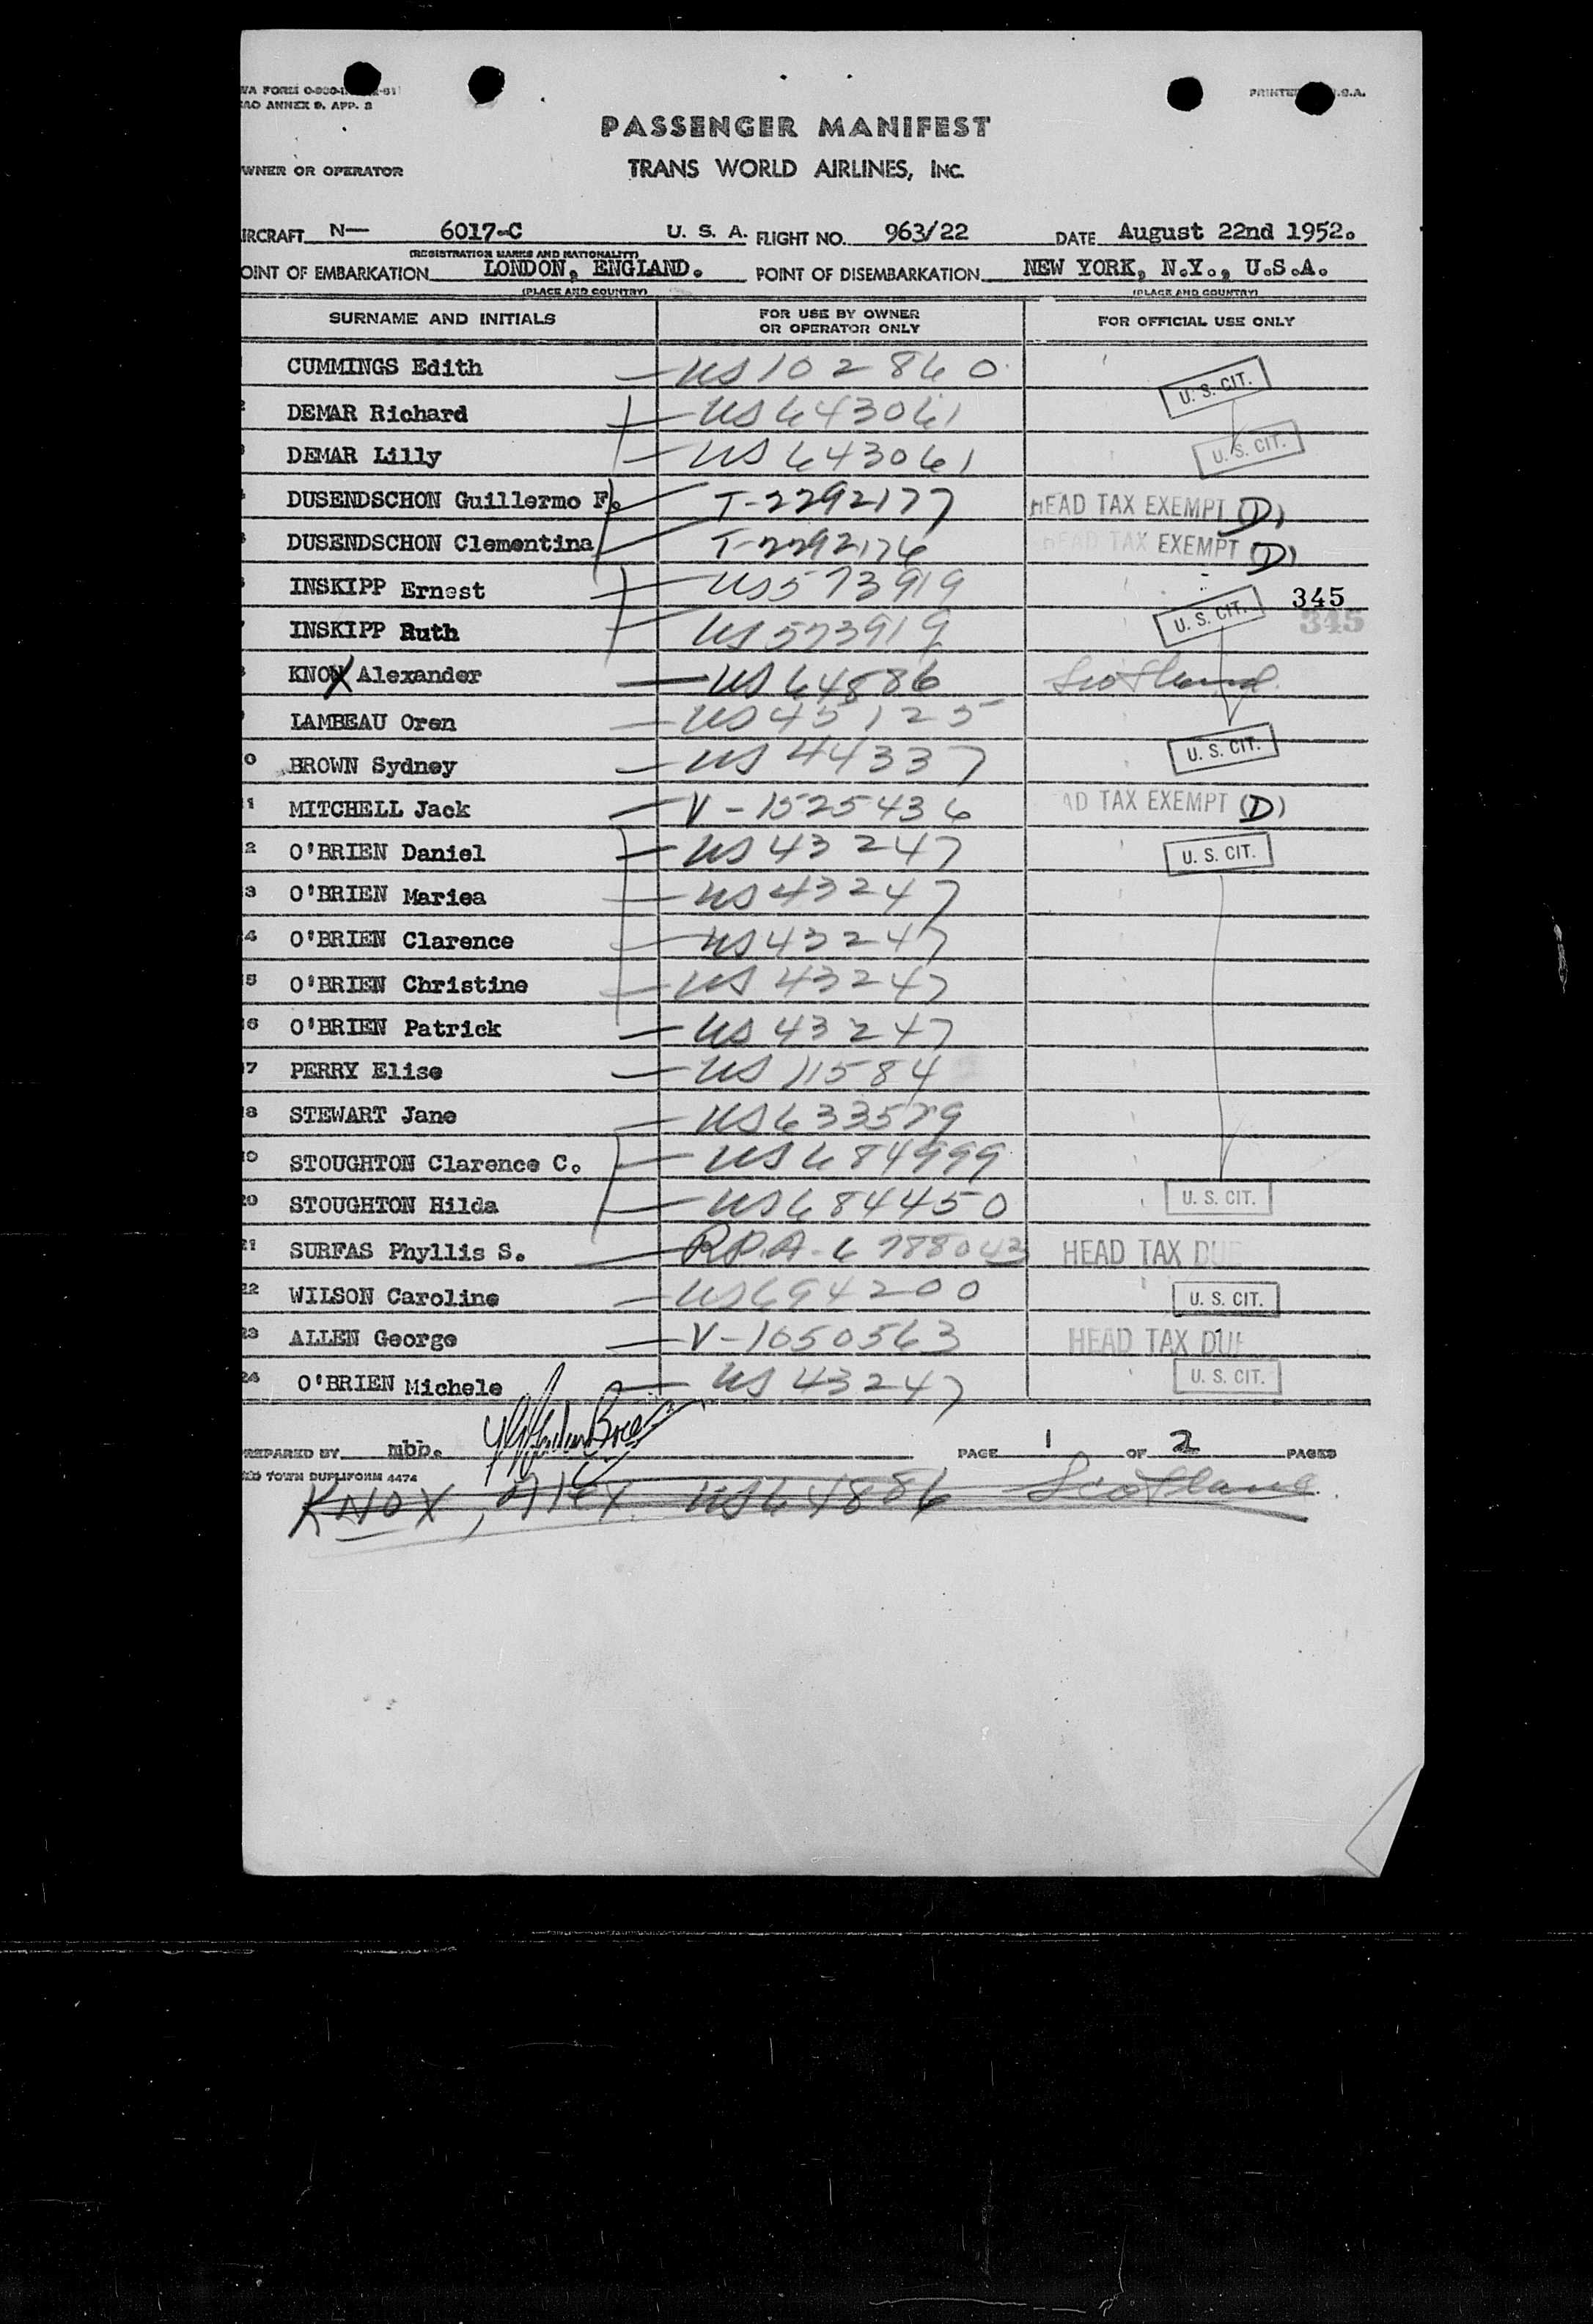 WA FORM O-
AO ANNEX 9, APP. 3
PRINTED U.S.A.
PASSENGER MANIFEST
WNER OR OPERATOR TRANS WORLD AIRLINES, INC.
IRCRAFT N— 6017-C U. S. A. FLIGHT NO. 963/22 DATE August 22nd 1952.
(REGISTRATION MARKS AND NATIONALITY)
OINT OF EMBARKATION LONDON, ENGLAND. POINT OF DISEMBARKATION NEW YORK, N.Y., U.S.A.
(PLACE AND COUNTRY) (PLACE AND COUNTRY)
SURNAME AND INITIALS FOR USE BY OWNER OR OPERATOR ONLY FOR OFFICIAL USE ONLY
CUMMINGS Edith — US 102860 U. S. CIT.
2 DEMAR Richard — US 643061
3 DEMAR Lilly — US 643061 U. S. CIT.
4 DUSENDSCHON Guillermo F. T-2292177 HEAD TAX EXEMPT (D)
5 DUSENDSCHON Clementina T-2292176 HEAD TAX EXEMPT (D)
6 INSKIPP Ernest — US 573919 345
7 INSKIPP Ruth — US 573919 U. S. CIT. 345
8 KNOX Alexander — US 64886 Scotland.
9 LAMBEAU Oren — US 45125
10 BROWN Sydney — US 44337 U. S. CIT.
11 MITCHELL Jack — V-1525436 AD TAX EXEMPT (D)
12 O'BRIEN Daniel — US 43247 U. S. CIT.
13 O'BRIEN Mariea — US 43247
14 O'BRIEN Clarence — US 43247
15 O'BRIEN Christine — US 43247
16 O'BRIEN Patrick — US 43247
17 PERRY Elise — US 11584
18 STEWART Jane — US 633579
19 STOUGHTON Clarence C. — US 684999
20 STOUGHTON Hilda — US 684450 U. S. CIT.
21 SURFAS Phyllis S. — R.P.A. 6788043 HEAD TAX DUE
22 WILSON Caroline — US 694200 U. S. CIT.
23 ALLEN George — V-1050563 HEAD TAX DUE
24 O'BRIEN Michele — US 43247 U. S. CIT.
PREPARED BY mbp. PAGE 1 OF 2 PAGES
TOWN DUPLIFORM 4474
KNOX, Alex. US 64886 Scotland.